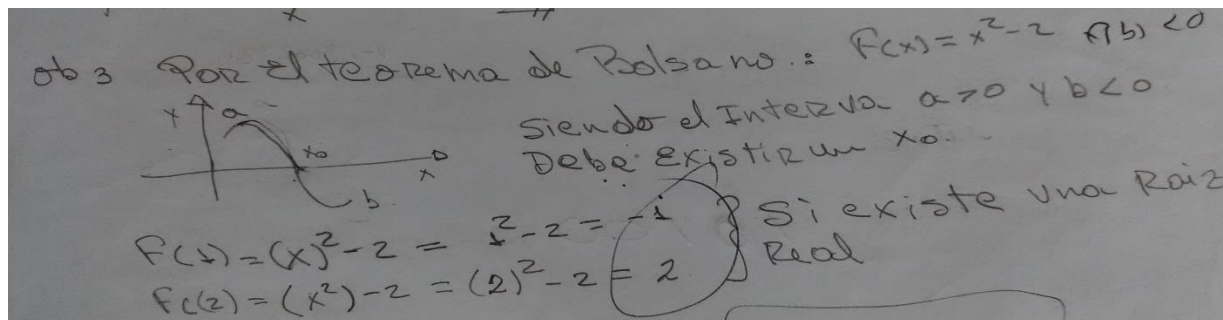 ob 3 Por el teorema de Bolsano.: F(x) = x² - 2 f(b) < 0
Siendo el Interva a > 0 y b < 0
Debe existir un x₀.
y a x₀ x b
F(1) = (x)² - 2 = 1² - 2 = -1
F(2) = (x²) - 2 = (2)² - 2 = 2
Si existe una Raiz
Real